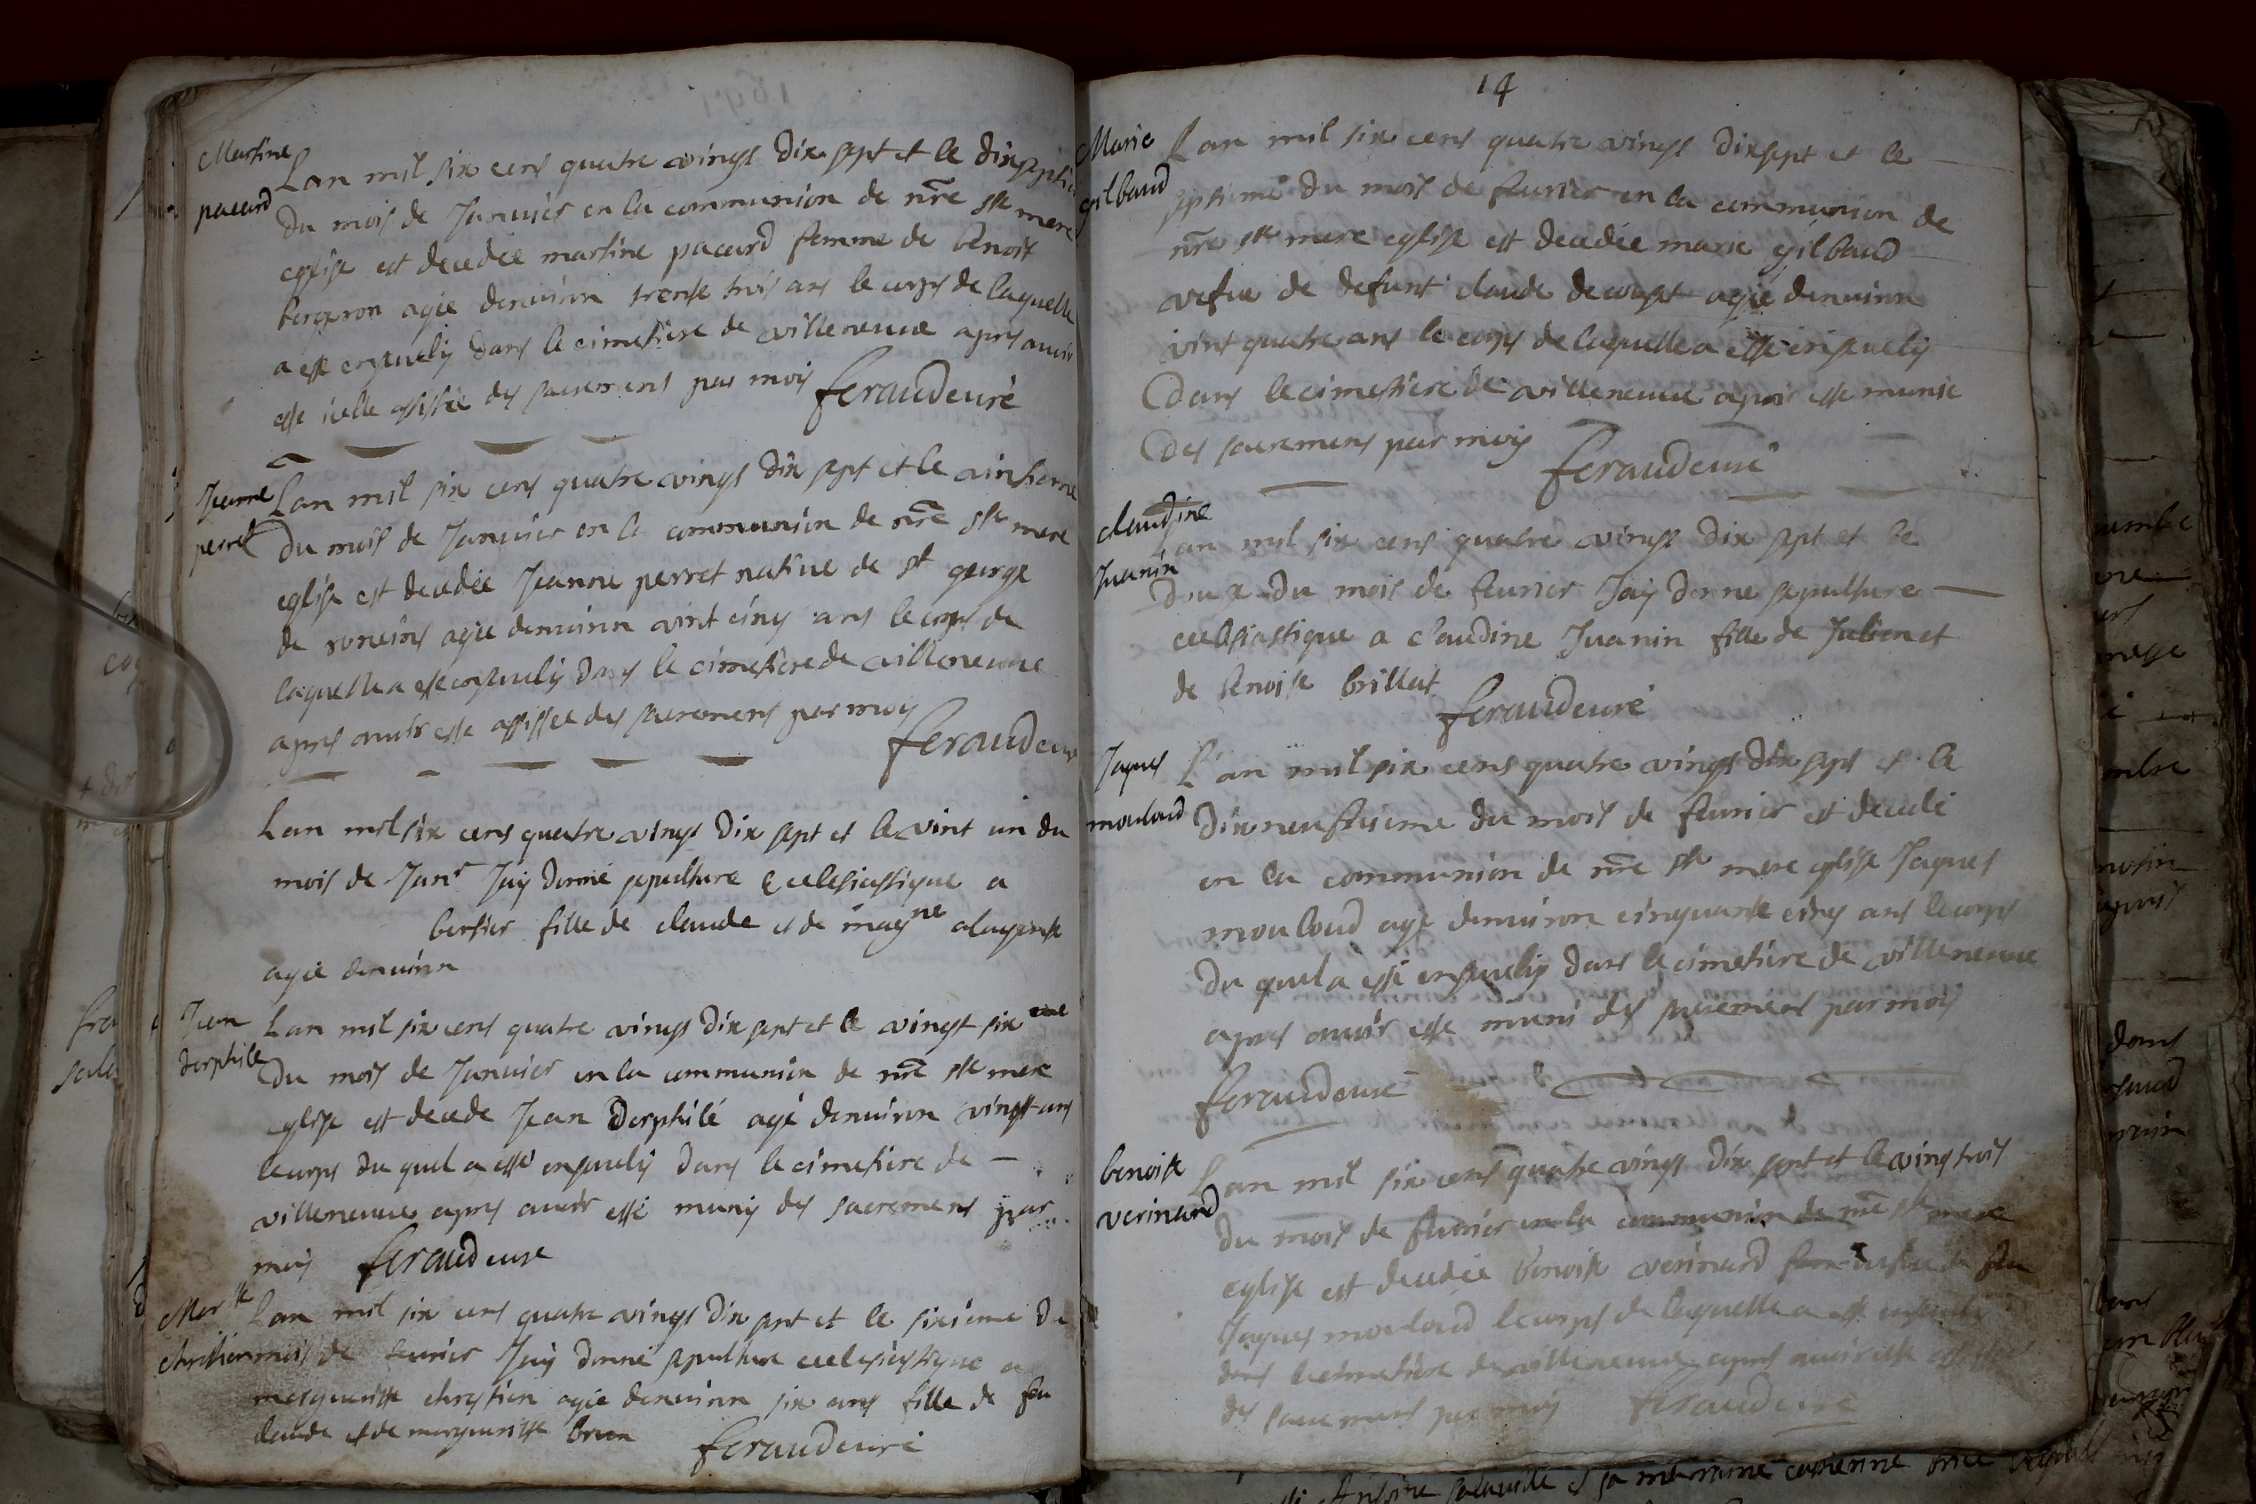 Martine
pacard
Lan mil six cens quatre vings dix sept et le dixseptie
du mois de Januier en la communion de nre ste mere
eglise est decedée martine pacard femme de benoist
bergeron agée denuiron trente trois ans le corps de laquelle
a esté enseuely dans le cimetiere de villeneuue apres auoir
esté icelle assistée des sacremens par moy feraud curé
Jeanne
perret
Lan mil six cens quatre vings dix sept et le vintieme
du mois de Januier en la communion de nre ste mere
eglise est decedée Jeanne perret natiue de st george
de reneins agée denuiron vint cinq ans le corps de
laquelle a esté enseuely dans le cimetiere de villeneuue
apres auoir esté assistée des sacremens par moy
feraud cu
Lan mil six cens quatre vings dix sept et le vint un du
mois de Janr Jay donné sepulture Ecclesiastique a
bertier fille de claude et de magne
agée denuiron
Jean
derphile
Lan mil six cens quatre vings dix sept et le vingt sixeme
du mois de Januier en la communion de nre ste mere
eglise est decede Jean Derphilé agé denuiron vingt ans
le corps du quel a esté enseuely dans le cimetiere de
villeneuue apres auoir esté muny des sacremens par
moy feraud curé
Margte
chrestien
Lan mil six cens quatre vings dix sept et le sixieme du
mois de feurier Jay donné sepulture ecclesiastique a
marguerite chrestien agée denuiron six ans fille de feu
claude et de marguerite brun
feraud curé
14
Marie
gilbaud
Lan mil six cens quatre vings dix sept et le
septieme du mois de feurier en la communion de
nre ste mere eglise est decedée marie gilbaud
vefue de defunt claude agée denuiron
vint quatre ans le corps de laquelle a esté enseuely
dans le cimetiere de villeneuue apres esté munie
des sacremens par moy
feraud curé
claudine
Juanin
Lan mil six cens quatre vings dix sept et le
douze du mois de feurier Jay donne sepulture
ecclesiastique a claudine Juanin fille de Julien et
de benoiste brillat
feraud curé
Jaques
mouloud
L'an mil six cens quatre vings dix sept et le
dix neufuieme du mois de feurier est decedé
en la communion de nre ste mere eglise Jaques
mouloud agé denuiron cinquante cinq ans le corps
du quel a esté enseuely dans le cimetiere de villeneuue
apres auoir esté muni des sacremens par moy
feraud curé
benoiste
verinard
Lan mil six cens quatre vings dix sept et le vingt trois
du mois de feurier en la communion de nre ste mere
eglise est decedée benoiste verinard vefue de feu
Jaques mouloud le corps de laquelle a esté enseuely
dans le cimetiere de villeneuue apres auoir esté assistée
des sacremens par moy feraud curé